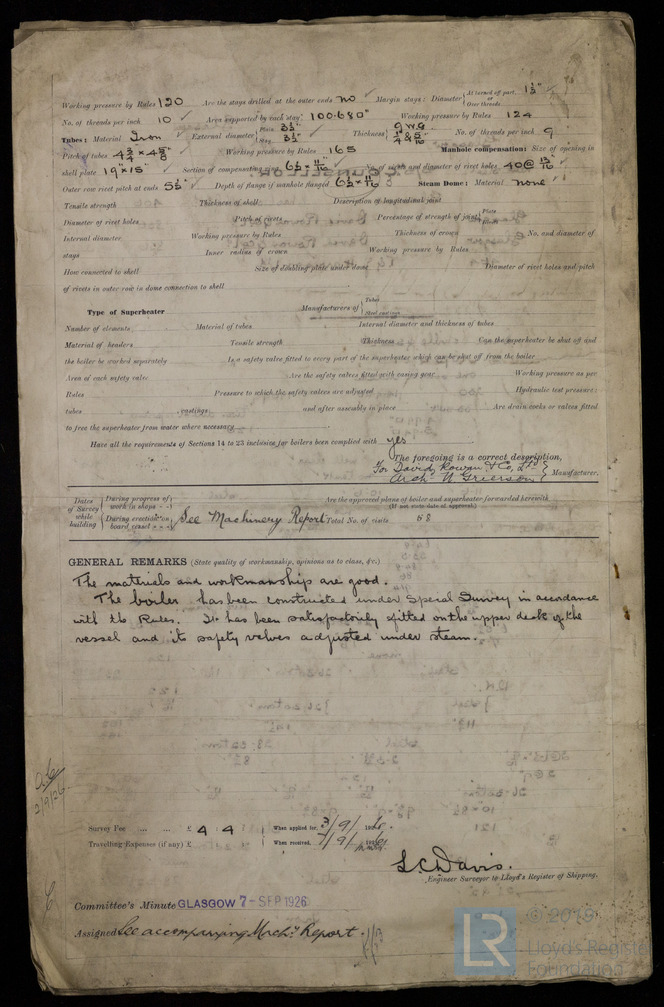 Working pressure by Rules 120 Are the stays drilled at the outer ends no Margin stays: Diameter { At turned off part, 1½" or Over threads
No. of threads per inch 10 Area supported by each stay 100.680" Working pressure by Rules 124
Tubes: Material Iron External diameter { Plain 3½" Stay 3½" Thickness { 9 W.G. ¼" & 5/16" No. of threads per inch 9
Pitch of tubes 4¾ × 4⅝" Working pressure by Rules 165 Manhole compensation: Size of opening in
shell plate 19" × 15" Section of compensating 6½ × 11/16" No. of rivets and diameter of rivet holes 40 @ 15/16"
Outer row rivet pitch at ends 5½" Depth of flange if manhole flanged Steam Dome: Material none
Tensile strength Thickness of shell Description of longitudinal joint
Diameter of rivet holes Pitch of rivets Percentage of strength of joint { Plate Rivets
Internal diameter Working pressure by Rules Thickness of crown No. and diameter of
stays Inner radius of crown Working pressure by Rules
How connected to shell Size of doubling plate under dome Diameter of rivet holes and pitch
of rivets in outer row in dome connection to shell
Type of Superheater Manufacturers of { Tubes Steel castings
Number of elements Material of tubes Internal diameter and thickness of tubes
Material of headers Tensile strength Thickness Can the superheater be shut off and
the boiler be worked separately Is a safety valve fitted to every part of the superheater which can be shut off from the boiler
Area of each safety valve Are the safety valves fitted with easing gear Working pressure as per
Rules Pressure to which the safety valves are adjusted Hydraulic test pressure:
tubes castings and after assembly in place Are drain cocks or valves fitted
to free the superheater from water where necessary
Have all the requirements of Sections 14 to 23 inclusive for boilers been complied with yes
The foregoing is a correct description,
For David Rowan & Co, Ltd
Arch. W Grierson } Manufacturer.
Dates of Survey while building { During progress of work in shops - - } Are the approved plans of boiler and superheater forwarded herewith
(If not state date of approval.)
{ During erection on board vessel - - - } See Machinery Report Total No. of visits 58
GENERAL REMARKS (State quality of workmanship, opinions as to class, &c.)
The materials and workmanship are good.
The boiler has been constructed under Special Survey in accordance
with the Rules. It has been satisfactorily fitted on the upper deck of the
vessel and its safety valves adjusted under steam.
2/9/26
Survey Fee ... ... £ 4 : 4 : When applied for, 3/9/1926.
Travelling Expenses (if any) £ : : When received, 7/9/1926
L.C. Davis.
Engineer Surveyor to Lloyd's Register of Shipping.
Committee's Minute GLASGOW 7 - SEP 1926
Assigned See accompanying Machy Report
© 2019
LR Lloyd's Register
Foundation